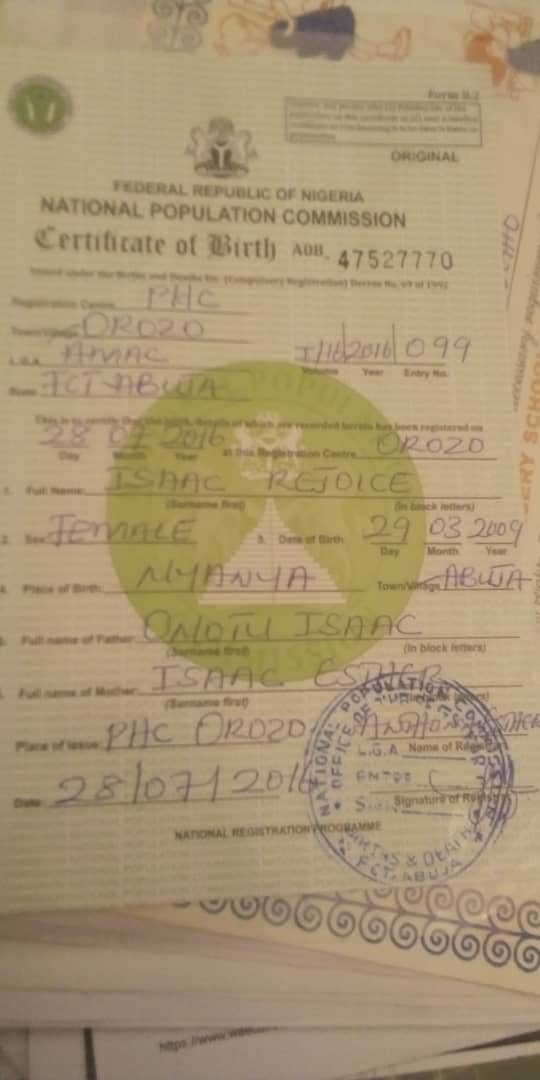 Form B.2
ORIGINAL
FEDERAL REPUBLIC OF NIGERIA
NATIONAL POPULATION COMMISSION
Certificate of Birth ADB 47527770
Issued under the Births and Deaths Etc. (Compulsory Registration) Decree No. 69 of 1992
Registration Centre PHC
Town/Village OROZO
L.G.A. AMAC
1/16 2016 099
Volume Year Entry No.
State FCT-ABUJA
This is to certify that the birth, details of which are recorded herein has been registered on
28 07 2016 at this Registration Centre OROZO
Day Month Year
1. Full Name: ISAAC REJOICE
(Surname first) (In block letters)
2. Sex FEMALE 3. Date of Birth 29 03 2009
Day Month Year
4. Place of Birth: NYANYA Town/Village ABUJA
Full name of Father: ISAAC
(Surname first) (In block letters)
Full name of Mother: ISAAC ESTHER
(Surname first)
Place of Issue: PHC OROZO
Name of Registrar
Date 28/07/2016
Signature of Registrar
NATIONAL REGISTRATION PROGRAMME
NATIONAL POPULATION COMMISSION
L.G.A
BIRTHS & DEATHS
FCT. ABUJA
https://www.